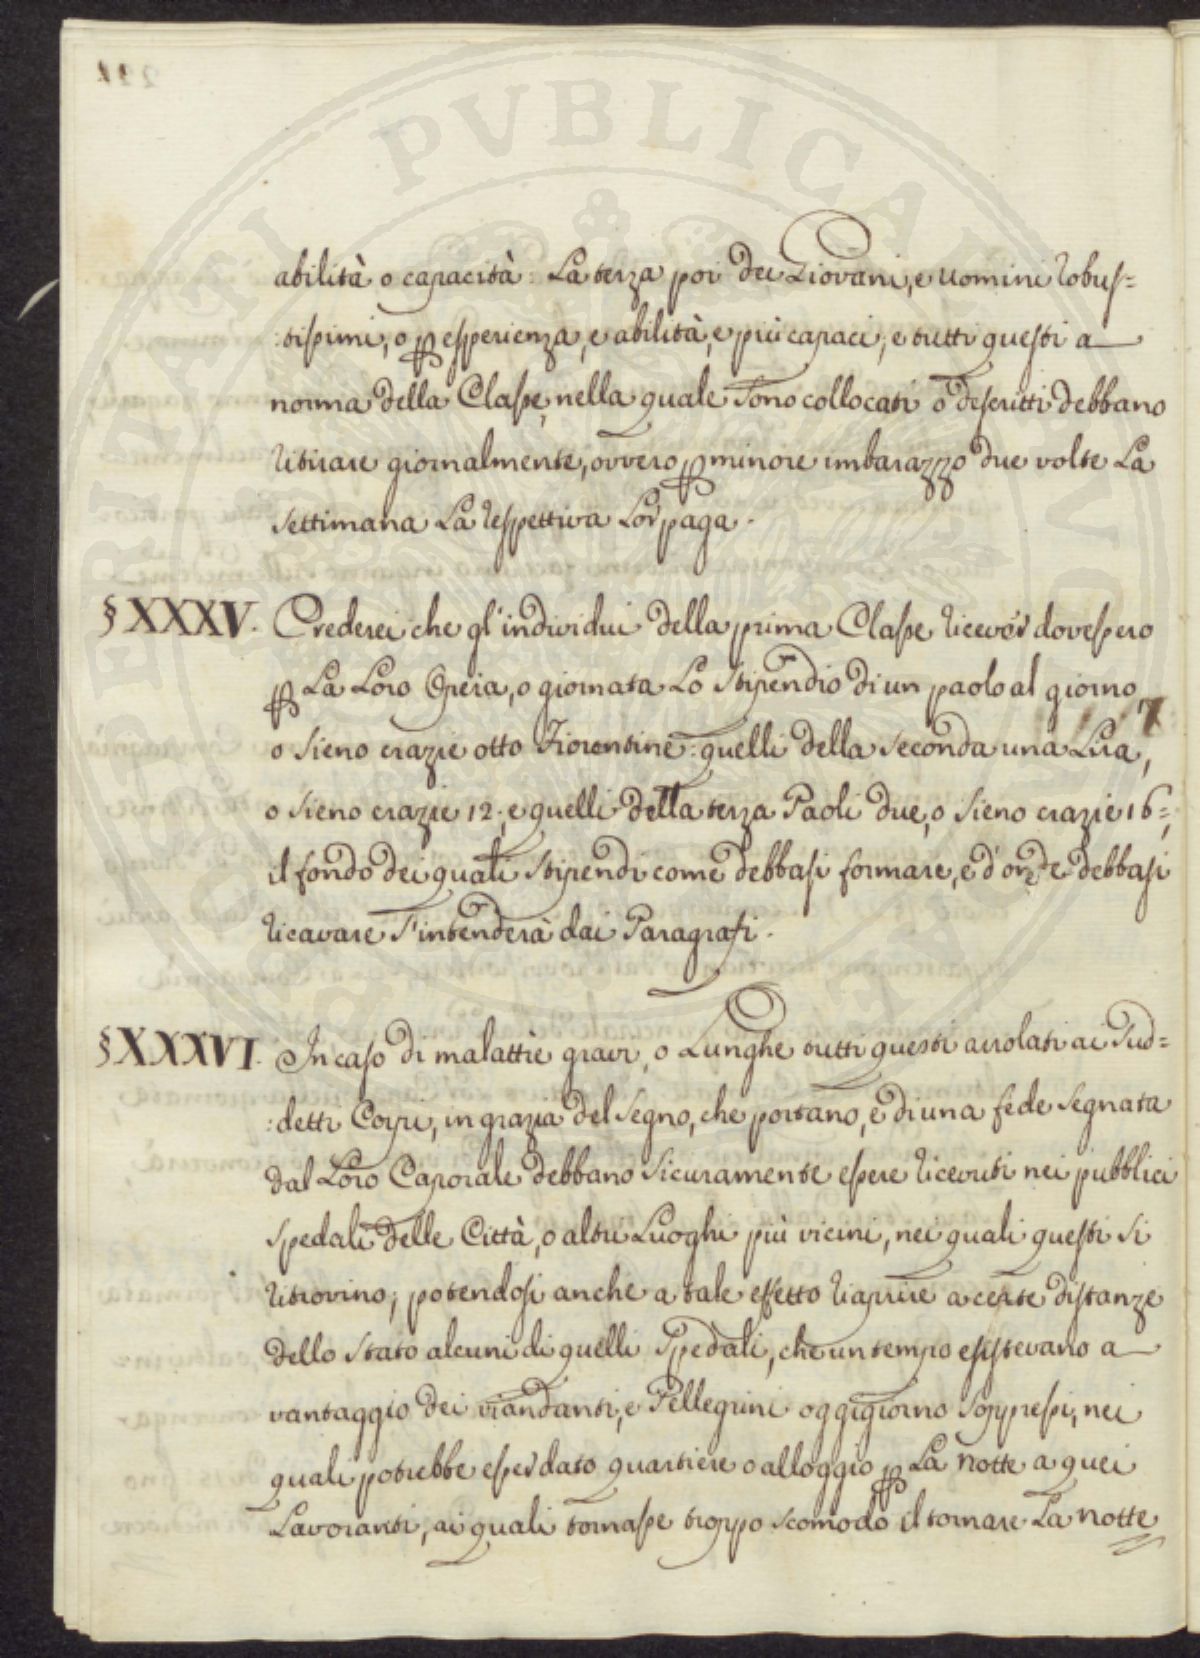 abilità o capacità: La terza poi dei Giovani, e Uomini robus=
:tissimi, o p esperienza, e abilità, e più capaci; e tutti questi a
norma della Classe, nella quale sono collocati o descritti debbano
ritirare giornalmente, ovvero p minore imbarazzo due volte La
settimana La respettiva Lor paga.
§XXXV. Crederei che gl'individui della prima Classe ricever dovessero
p La Loro Opera, o giornata Lo stipendio di un paolo al giorno
o sieno crazie otto Fiorentine: quelli della seconda una Lira,
o sieno crazie 12; e quelli della terza Paoli due, o sieno crazie 16=;
il fondo dei quali stipendi come debbasi formare, e d'onde debbasi
ricavare s'intenderà dai Paragrafi.
§XXXVI. In caso di malattie gravi, o Lunghe tutti questi arrolati ai sud=
:detti Corpi, in grazia del segno, che portano, e di una fede segnata
dal Loro Caporale debbano sicuramente essere ricevuti nei pubblici
spedali delle Città, o altri Luoghi più vicini, nei quali questi si
ritrovino; potendosi anche a tale effetto riaprire a certe distanze
dello stato alcuni di quelli Spedali, che un tempo esistevano a
vantaggio dei viandanti, e Pellegrini oggigiorno soppressi, nei
quali potrebbe esser dato quartiere o alloggio p La notte a quei
Lavoranti, ai quali tornasse troppo scomodo il tornare La notte
PERITATI PVBLICAE